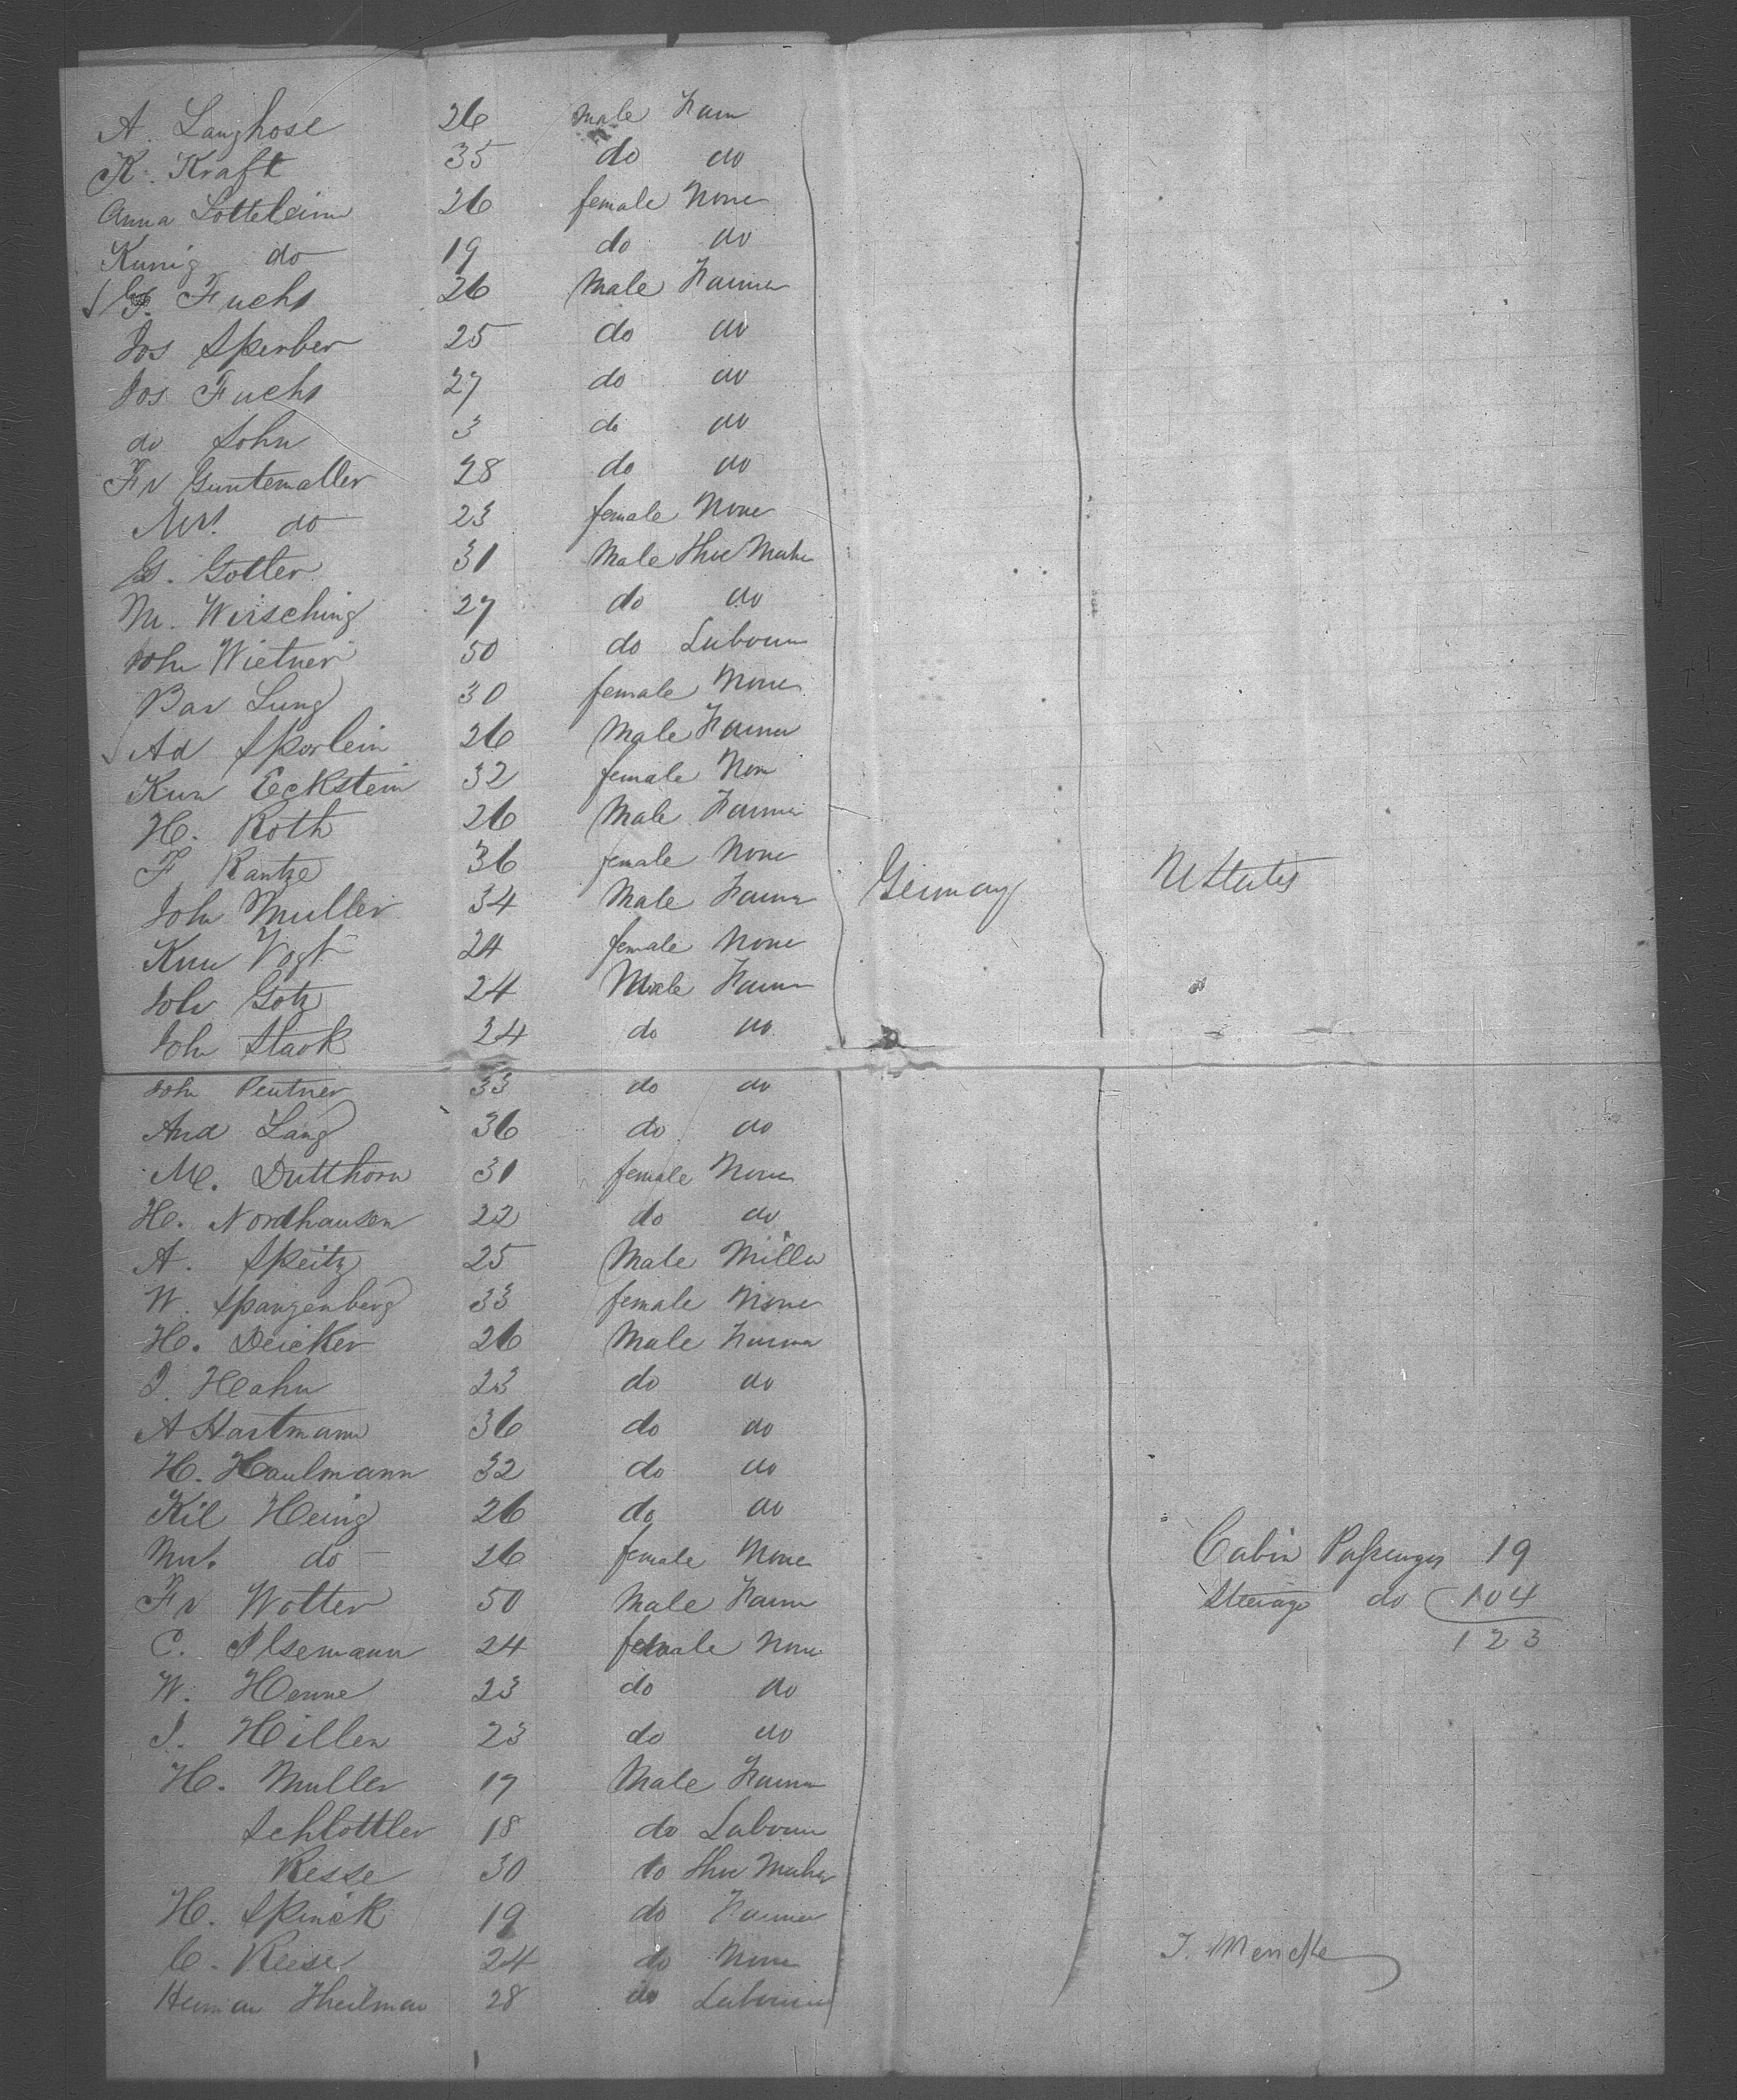 A. Langhose 26 male Farm
K. Kraft 35 do do
Anna Lottelеim 26 female None
Kunig do 19 do do
G. Fuchs 26 Male Farmer
Jos Sperber 25 do do
Jos Fuchs 27 do do
do John 3 do do
Fr Guntemaller 28 do do
Mrs. do 23 female None
G. Gotter 31 Male Shoe Maker
M. Wirsching 27 do do
John Wietner 50 do Labourer
Bar Lung 30 female None
Ad Sporlein 26 Male Farmer
Kun Eckstein 32 female Non
H. Roth 26 Male Farmer
F Rantze 36 female None
Joh Muller 34 Male Farmer Germany U States
Kun Vogt 24 female None
Joh Gotz 24 Male Farmer
Joh Stark 24 do do
Joh Peutner 33 do do
And Lang 36 do do
M. Dutthorn 31 female None
H. Nordhausen 22 do do
A. Speitz 25 Male Miller
W. Spangenberg 33 female None
H. Deicker 26 Male Farmer
J. Hahn 23 do do
A Hartmann 36 do do
H. Haulmann 32 do do
Kil Heing 26 do do
Mrs. do 26 female None
Fr Wotter 50 Male Farmer
C. Ilsemann 24 female None
W. Henne 23 do do
J. Hillen 23 do do
H. Muller 17 Male Farmer
Schlottler 18 do Labourer
Resse 30 do Shoe Maker
H. Spinck 19 do Farmer
C. Reese 24 do None
Herman Theilman 28 do Labourer
Cabin Passenger 19
Steerage do 104
123
J. Mencke